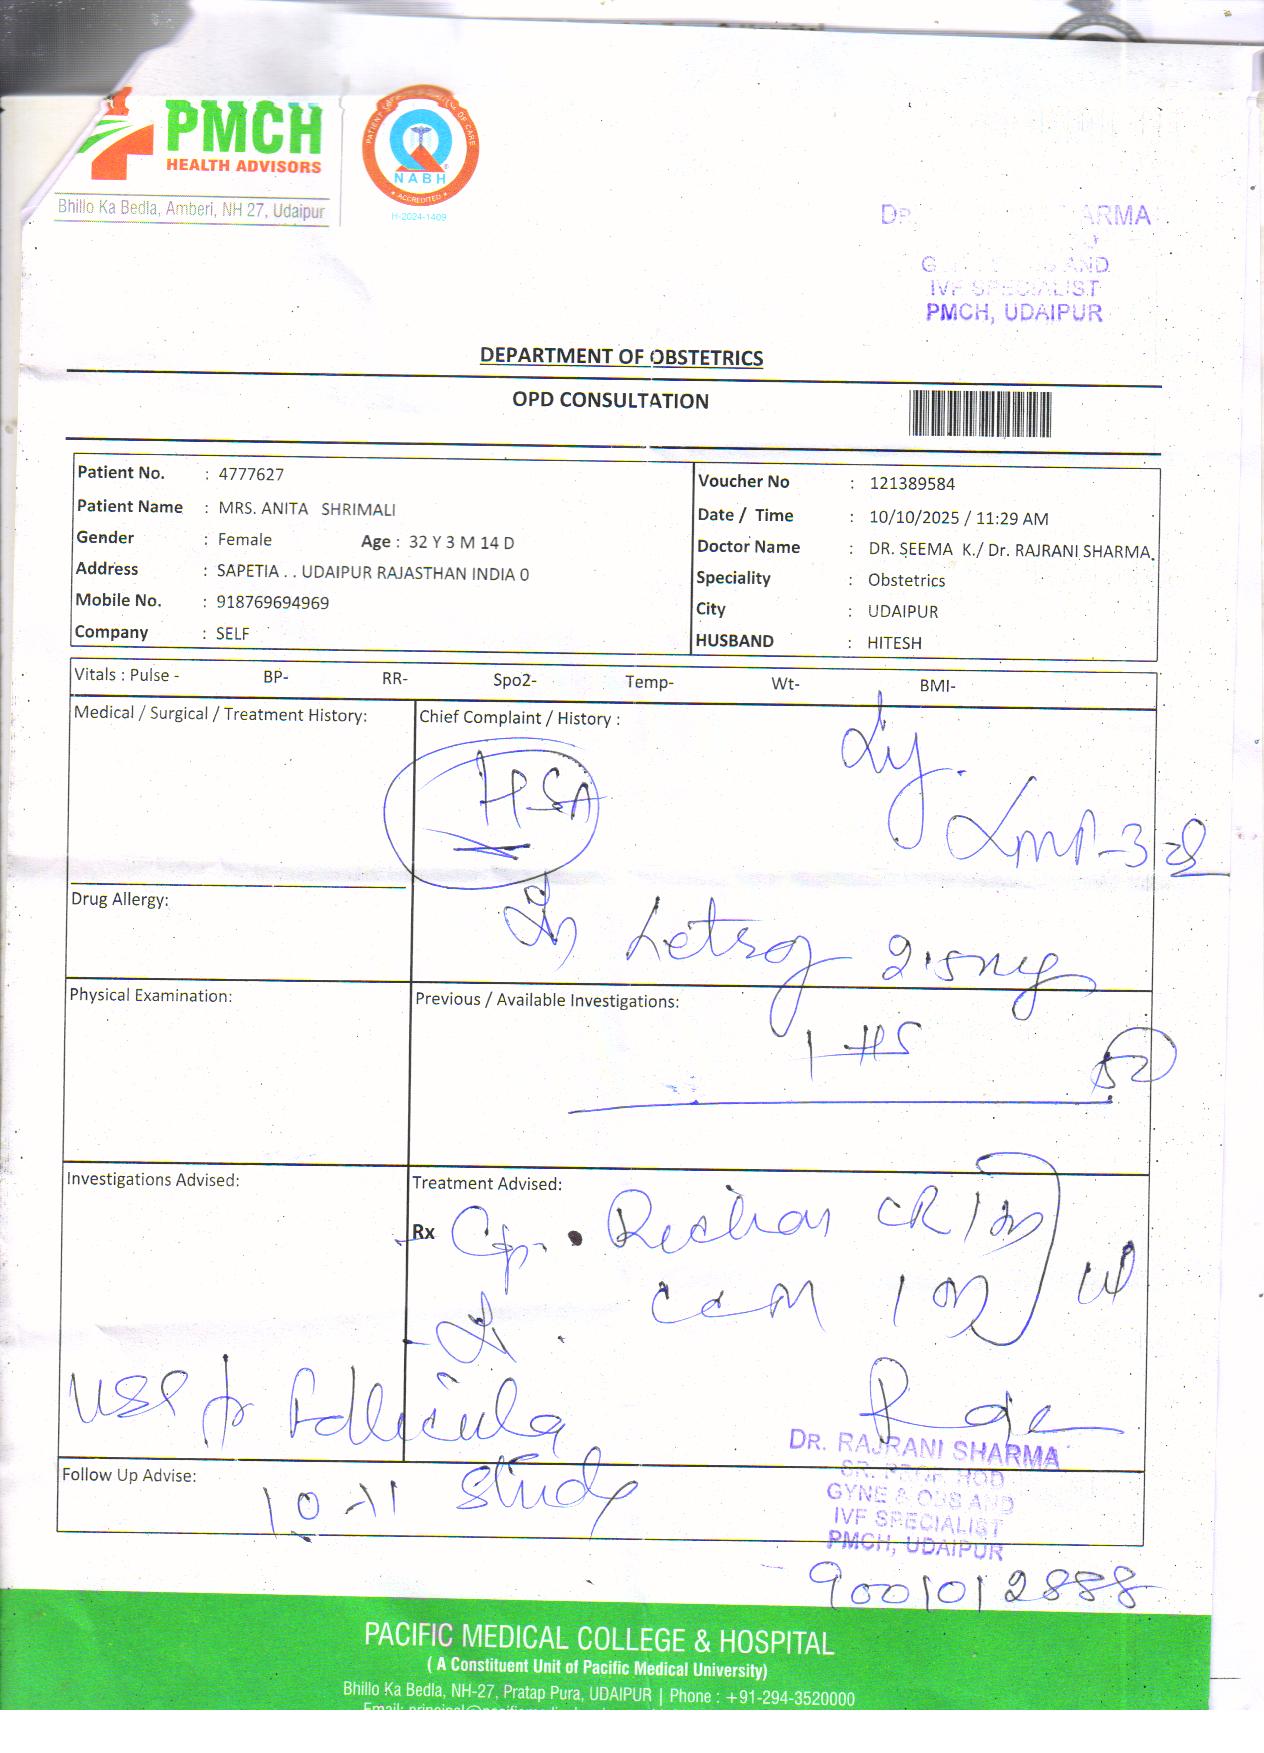 PMCH
HEALTH ADVISORS
Bhillo Ka Bedla, Amberi, NH 27, Udaipur
NABH
ACCREDITED
H-2024-1409
IVF SPECIALIST
PMCH, UDAIPUR
DEPARTMENT OF OBSTETRICS
OPD CONSULTATION
Patient No. : 4777627
Patient Name : MRS. ANITA SHRIMALI
Gender : Female Age : 32 Y 3 M 14 D
Address : SAPETIA . . UDAIPUR RAJASTHAN INDIA 0
Mobile No. : 918769694969
Company : SELF
Voucher No : 121389584
Date / Time : 10/10/2025 / 11:29 AM
Doctor Name : DR. SEEMA K./ Dr. RAJRANI SHARMA.
Speciality : Obstetrics
City : UDAIPUR
HUSBAND : HITESH
Vitals : Pulse - BP- RR- Spo2- Temp- Wt- BMI-
Medical / Surgical / Treatment History:
Chief Complaint / History :
HSA
LMP-3
Drug Allergy:
Letroz 2.5mg
Physical Examination:
Previous / Available Investigations:
1 HS
Investigations Advised:
Treatment Advised:
Rx Cap.
CR
USG for Follicular
study
Follow Up Advise:
DR. RAJRANI SHARMA
SR. PROF. HOD
GYNE & OBS AND
IVF SPECIALIST
PMCH, UDAIPUR
9001012888
PACIFIC MEDICAL COLLEGE & HOSPITAL
( A Constituent Unit of Pacific Medical University)
Bhillo Ka Bedla, NH-27, Pratap Pura, UDAIPUR | Phone : +91-294-3520000